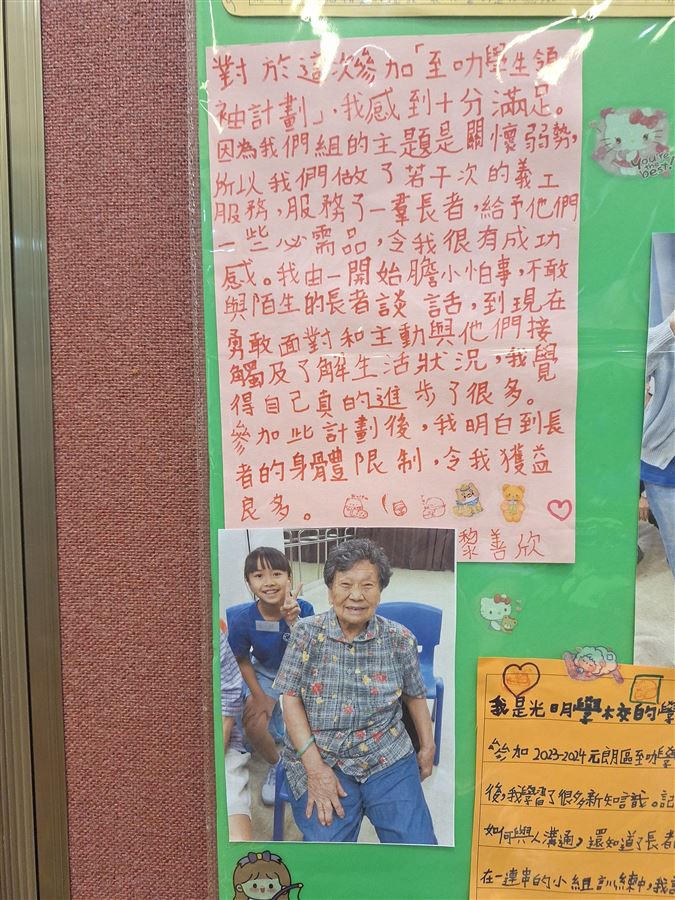 對於這次參加「至叻學生領
袖計劃」，我感到十分滿足。
因為我們組的主題是關懷弱勢，
所以我們做了若干次的義工
服務，服務了一羣長者，給予他們
一些必需品，令我很有成功
感。我由一開始膽小怕事，不敢
與陌生的長者談話，到現在
勇敢面對和主動與他們接
觸及了解生活狀況，我覺
得自己真的進步了很多。
參加此計劃後，我明白到長
者的身體限制，令我獲益
良多。
黎善欣
You're
the
best!
我是光明學校的學
參加2023-2024元朗區至叻學
後，我學習了很多新知識。記
如何與人溝通，還知道了長者
在一連串的小組訓練中，我